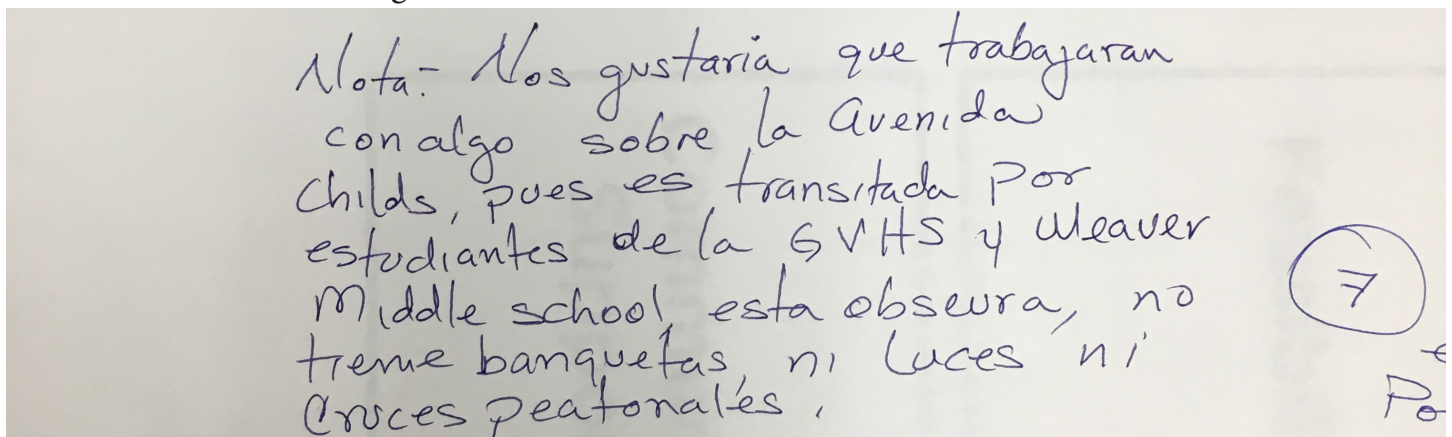 Nota:- Nos gustaria que trabajaran
con algo sobre la avenida
Childs, pues es transitada por
estudiantes de la GVHS y Weaver
Middle school, esta obscura, no
tieme banquetas, ni luces ni
Cruces peatonales.
7
Po